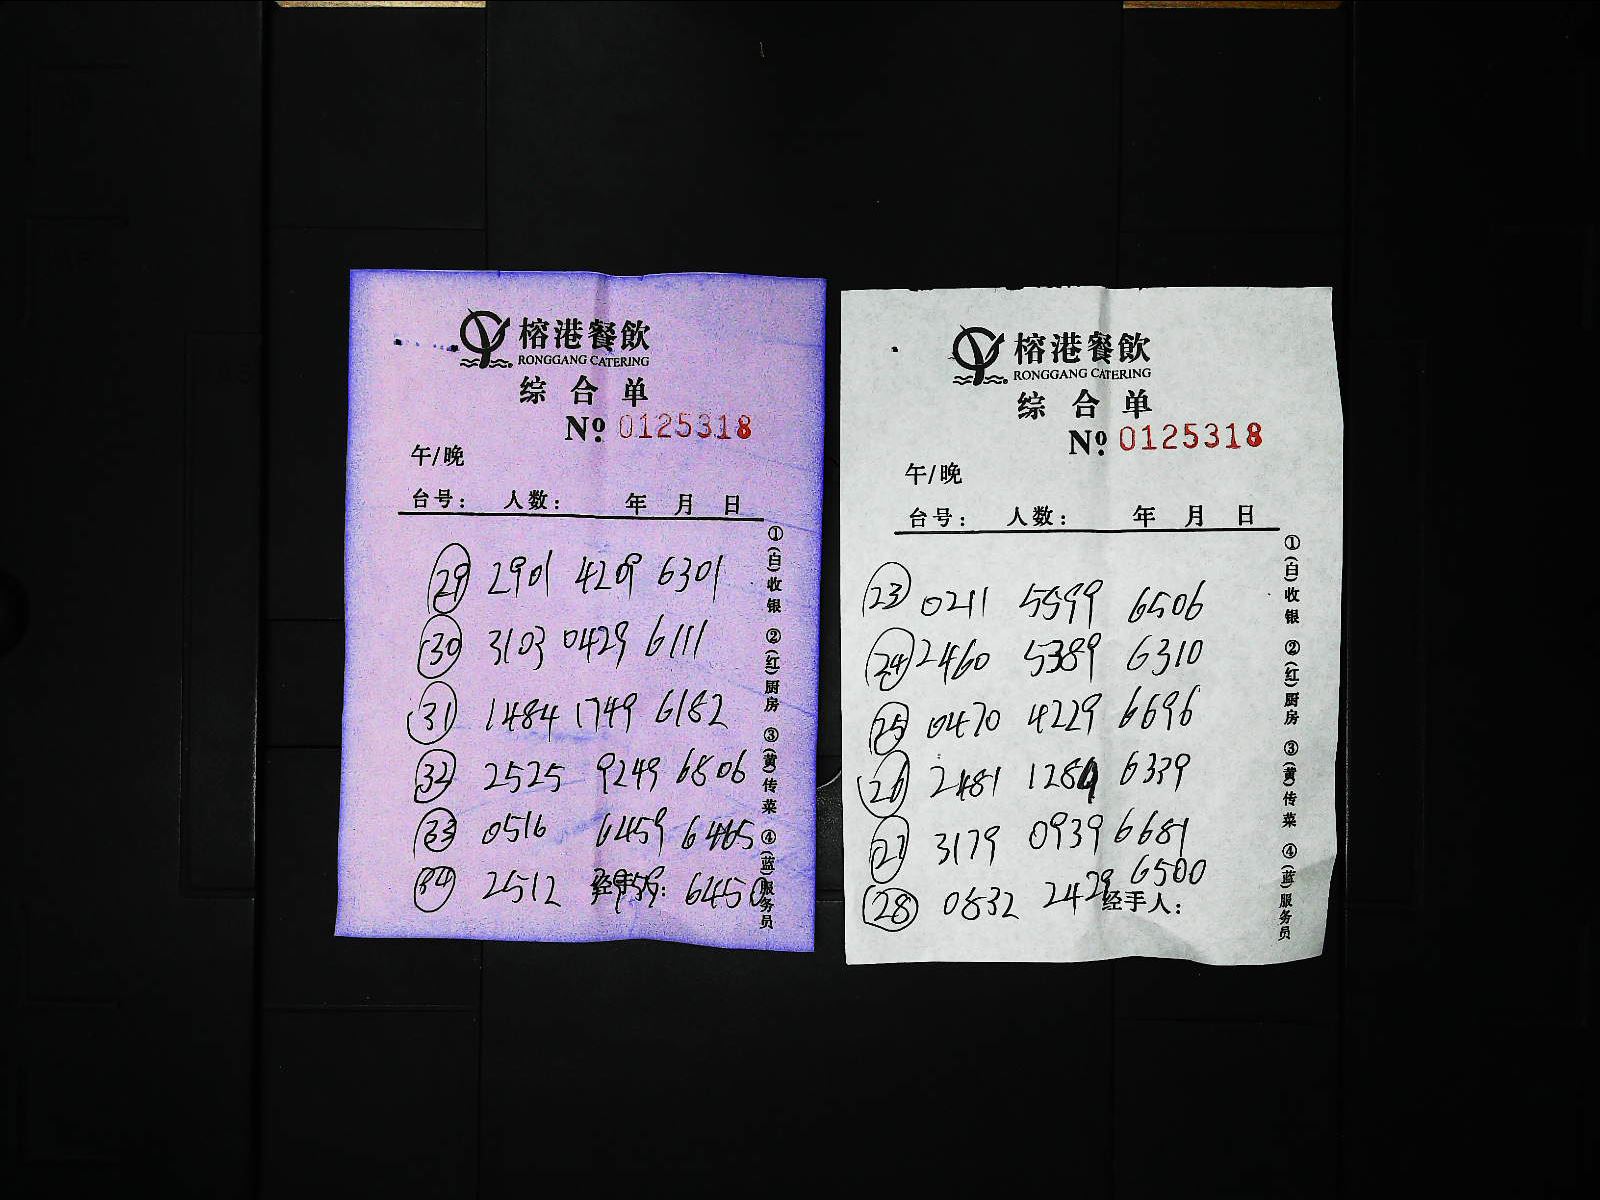 榕港餐飲
RONGGANG CATERING
综合单
No. 0125318
午/晚
台号: 人数: 年 月 日
29 2901 4209 6301
30 3103 0429 6111
31 1484 1749 6182
32 2525 9249 6806
33 0516 6459 6465
34 2512 3959 6450
经手人:
①(白)收银 ②(红)厨房 ③(黄)传菜 ④(蓝)服务员
榕港餐飲
RONGGANG CATERING
综合单
No. 0125318
午/晚
台号: 人数: 年 月 日
23 0211 5599 6506
24 2460 5389 6310
25 0470 4229 6696
26 2481 1289 6339
27 3179 0939 6681
28 0832 2429 6500
经手人:
①(白)收银 ②(红)厨房 ③(黄)传菜 ④(蓝)服务员